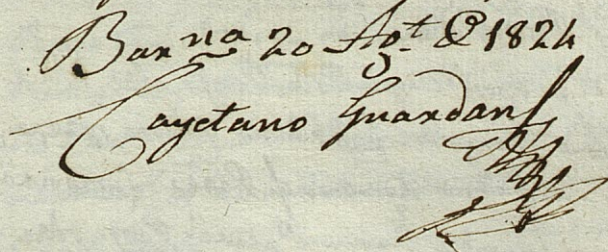 Barna 20 Agt. de 1824
Cayetano Guardans